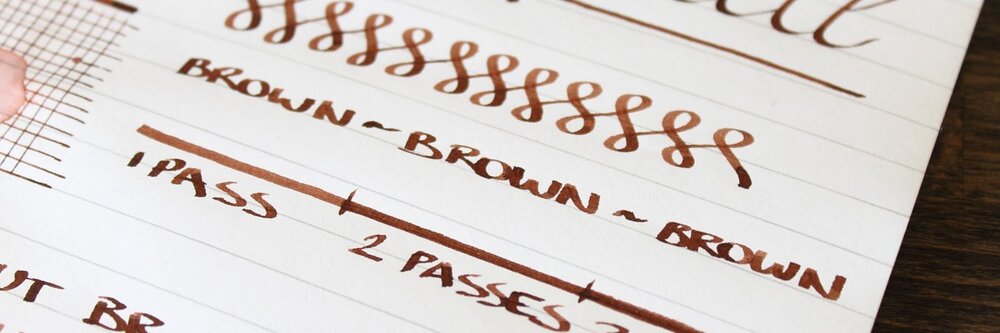 BROWN ~ BROWN ~ BROWN
1 PASS 2 PASSES
UT BR